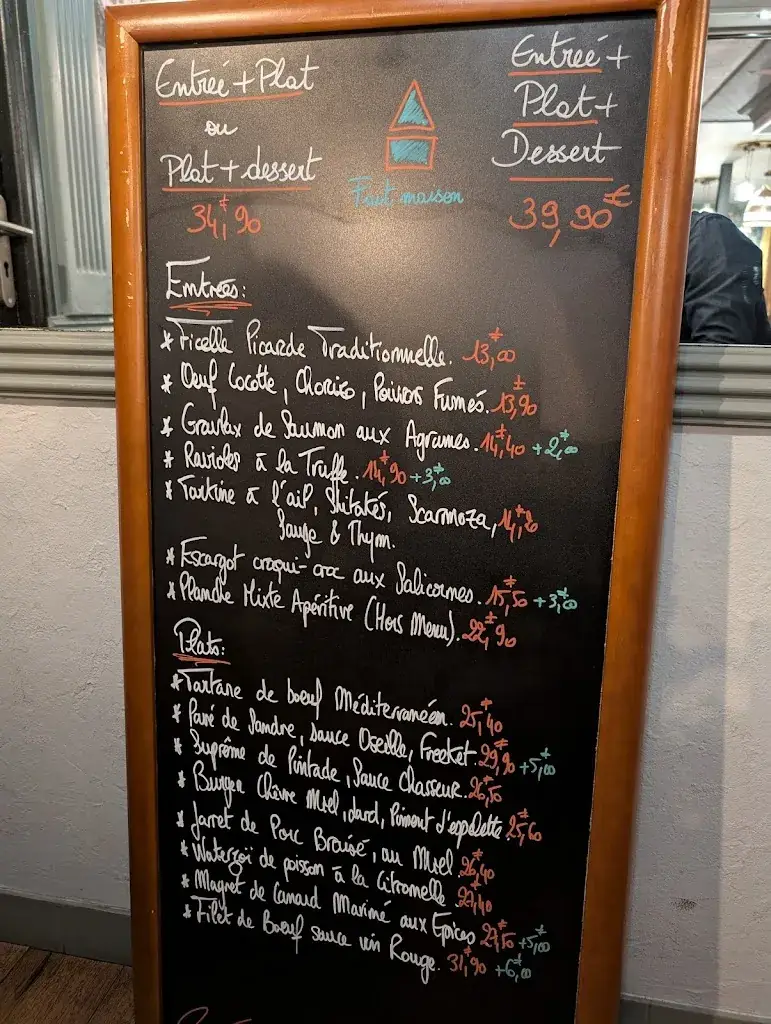 Entreé + Plat
ou
Plat + dessert
34,90
Fait maison
Entreé +
Plat +
Dessert
39,90€
Entrées:
* Ficelle Picarde Traditionnelle. 13,00
* Oeuf Cocotte, Chorizo, Poivrons Fumés. 13,90
* Gravlax de Saumon aux Agrumes. 14,40 +2,00
* Ravioles à la Truffe. 14,90 +3,00
* Tartine à l'ail, Shitakés, Scarmoza,
Sauge & Thym.
* Escargot croqui-croc aux Salicornes. 15,50 +3,00
* Planche Mixte Apéritive (Hors Menu). 22,90
Plats:
* Tartare de boeuf Méditerranéen. 25,40
* Pavé de Sandre, sauce Oseille, 29,90 +5,00
* Suprême de Pintade, Sauce Chasseur. 26,50
* Burger Chèvre Miel, Lard, Piment d'espelette 25,60
* Jarret de Porc Braisé, au Miel 26,40
* Waterzoï de poisson à la Citronelle 27,40
* Magret de Canard Mariné aux Epices 27,50 +5,00
* Filet de Boeuf sauce vin Rouge. 31,90 +6,00